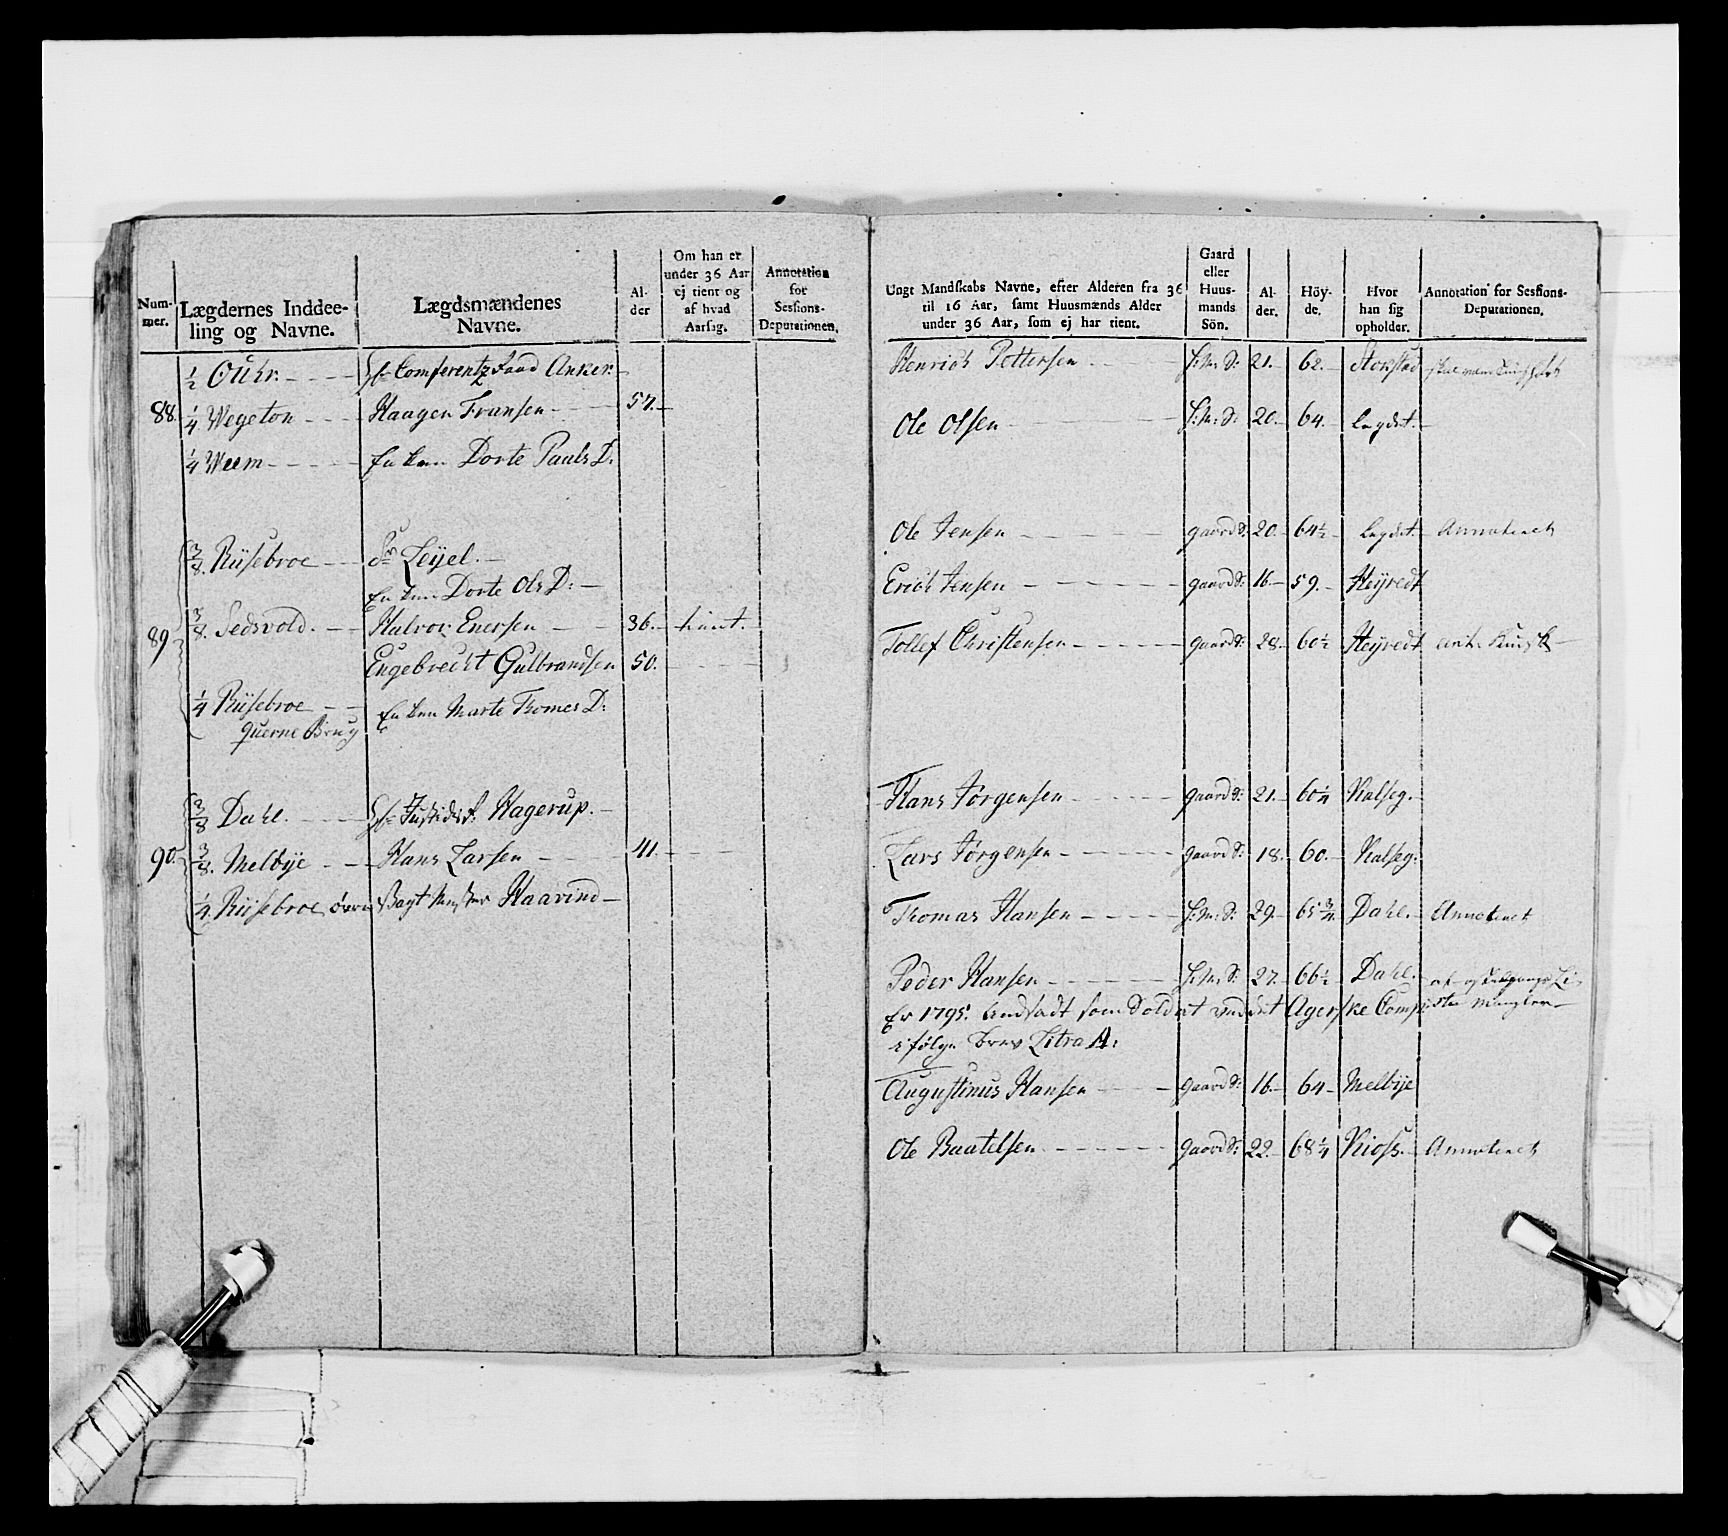 Num-
mer.
Lægdernes Inddee-
ling og Navne.
Lægdsmændenes
Navne.
Al-
der
Om han er
under 36 Aar
ej tient og
af hvad
Aarsag.
Annotation
for
Sessions-
Deputationen.
½ Ouhr. Hr Comferentz Raad Anker.
88. ¼ Wegeton Haagen Fransen 57.
¼ Weem Enken Dorte Pauls D:
⅜. Riisebroe Sr Leijel.
Enken Dorte Ols D:
89 ⅜. Sedsvold. Halvor Enersen 36. tient.
Engebrecht Gulbrandsen 50.
¼ Riisebroe Enken Marte Tomes D:
querne Brug
⅜ Dahl. Hr Justidsr: Hagerup.
90. ⅜. Melbye Hans Larsen 41.
¼ Riisebroe øvre Vagt Mester Haavind
Ungt Mandskabs Navne, efter Alderen fra 36
til 16 Aar, samt Huusmænds Alder
under 36 Aar, som ej har tient.
Gaard
eller
Huus-
mands
Sön.
Al-
der.
Höy-
de.
Hvor
han sig
opholder.
Annotation for Sessions-
Deputationen.
Henrich Pettersen H: M: S: 21. 62. Stokstad
Ole Olsen H: M: S: 20. 64. Legdet.
Ole Jensen gaard S: 20. 64½ Legdet. Annoteret
Erich Jensen gaard S: 16 59. Heyredt
Tollef Christensen gaard S: 28 60½ Heyredt
Hans Jørgensen gaard S: 21. 60¼ Kalseg.
Lars Jørgensen gaard S: 18. 60. Kalseg.
Tomas Hansen H: M: S: 29. 65¾ Dahl. Annoteret
Peder Hansen H: M: S: 27. 66½ Dahl.
Er 1795. Andsadt som Soldat ved det Agerske Comp:
ifølge brev Litra A:
Augustinus Hansen gaard S: 16. 64 Melbye
Ole Baatelsen gaard S: 22. 68¼ Kioss. Annoteret